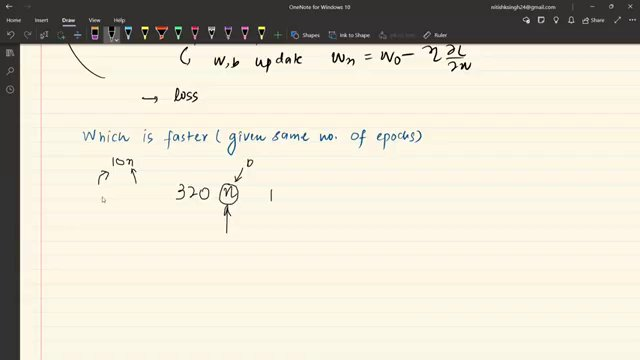 OneNote for Windows 10
nitishksingh24@gmail.com
Home Insert Draw View Help
Shapes Ink to Shape Math
w, b update wn = w0 - η ∂L/∂w
→ loss
Which is faster (given same no. of epochs)
10n
320 n 1